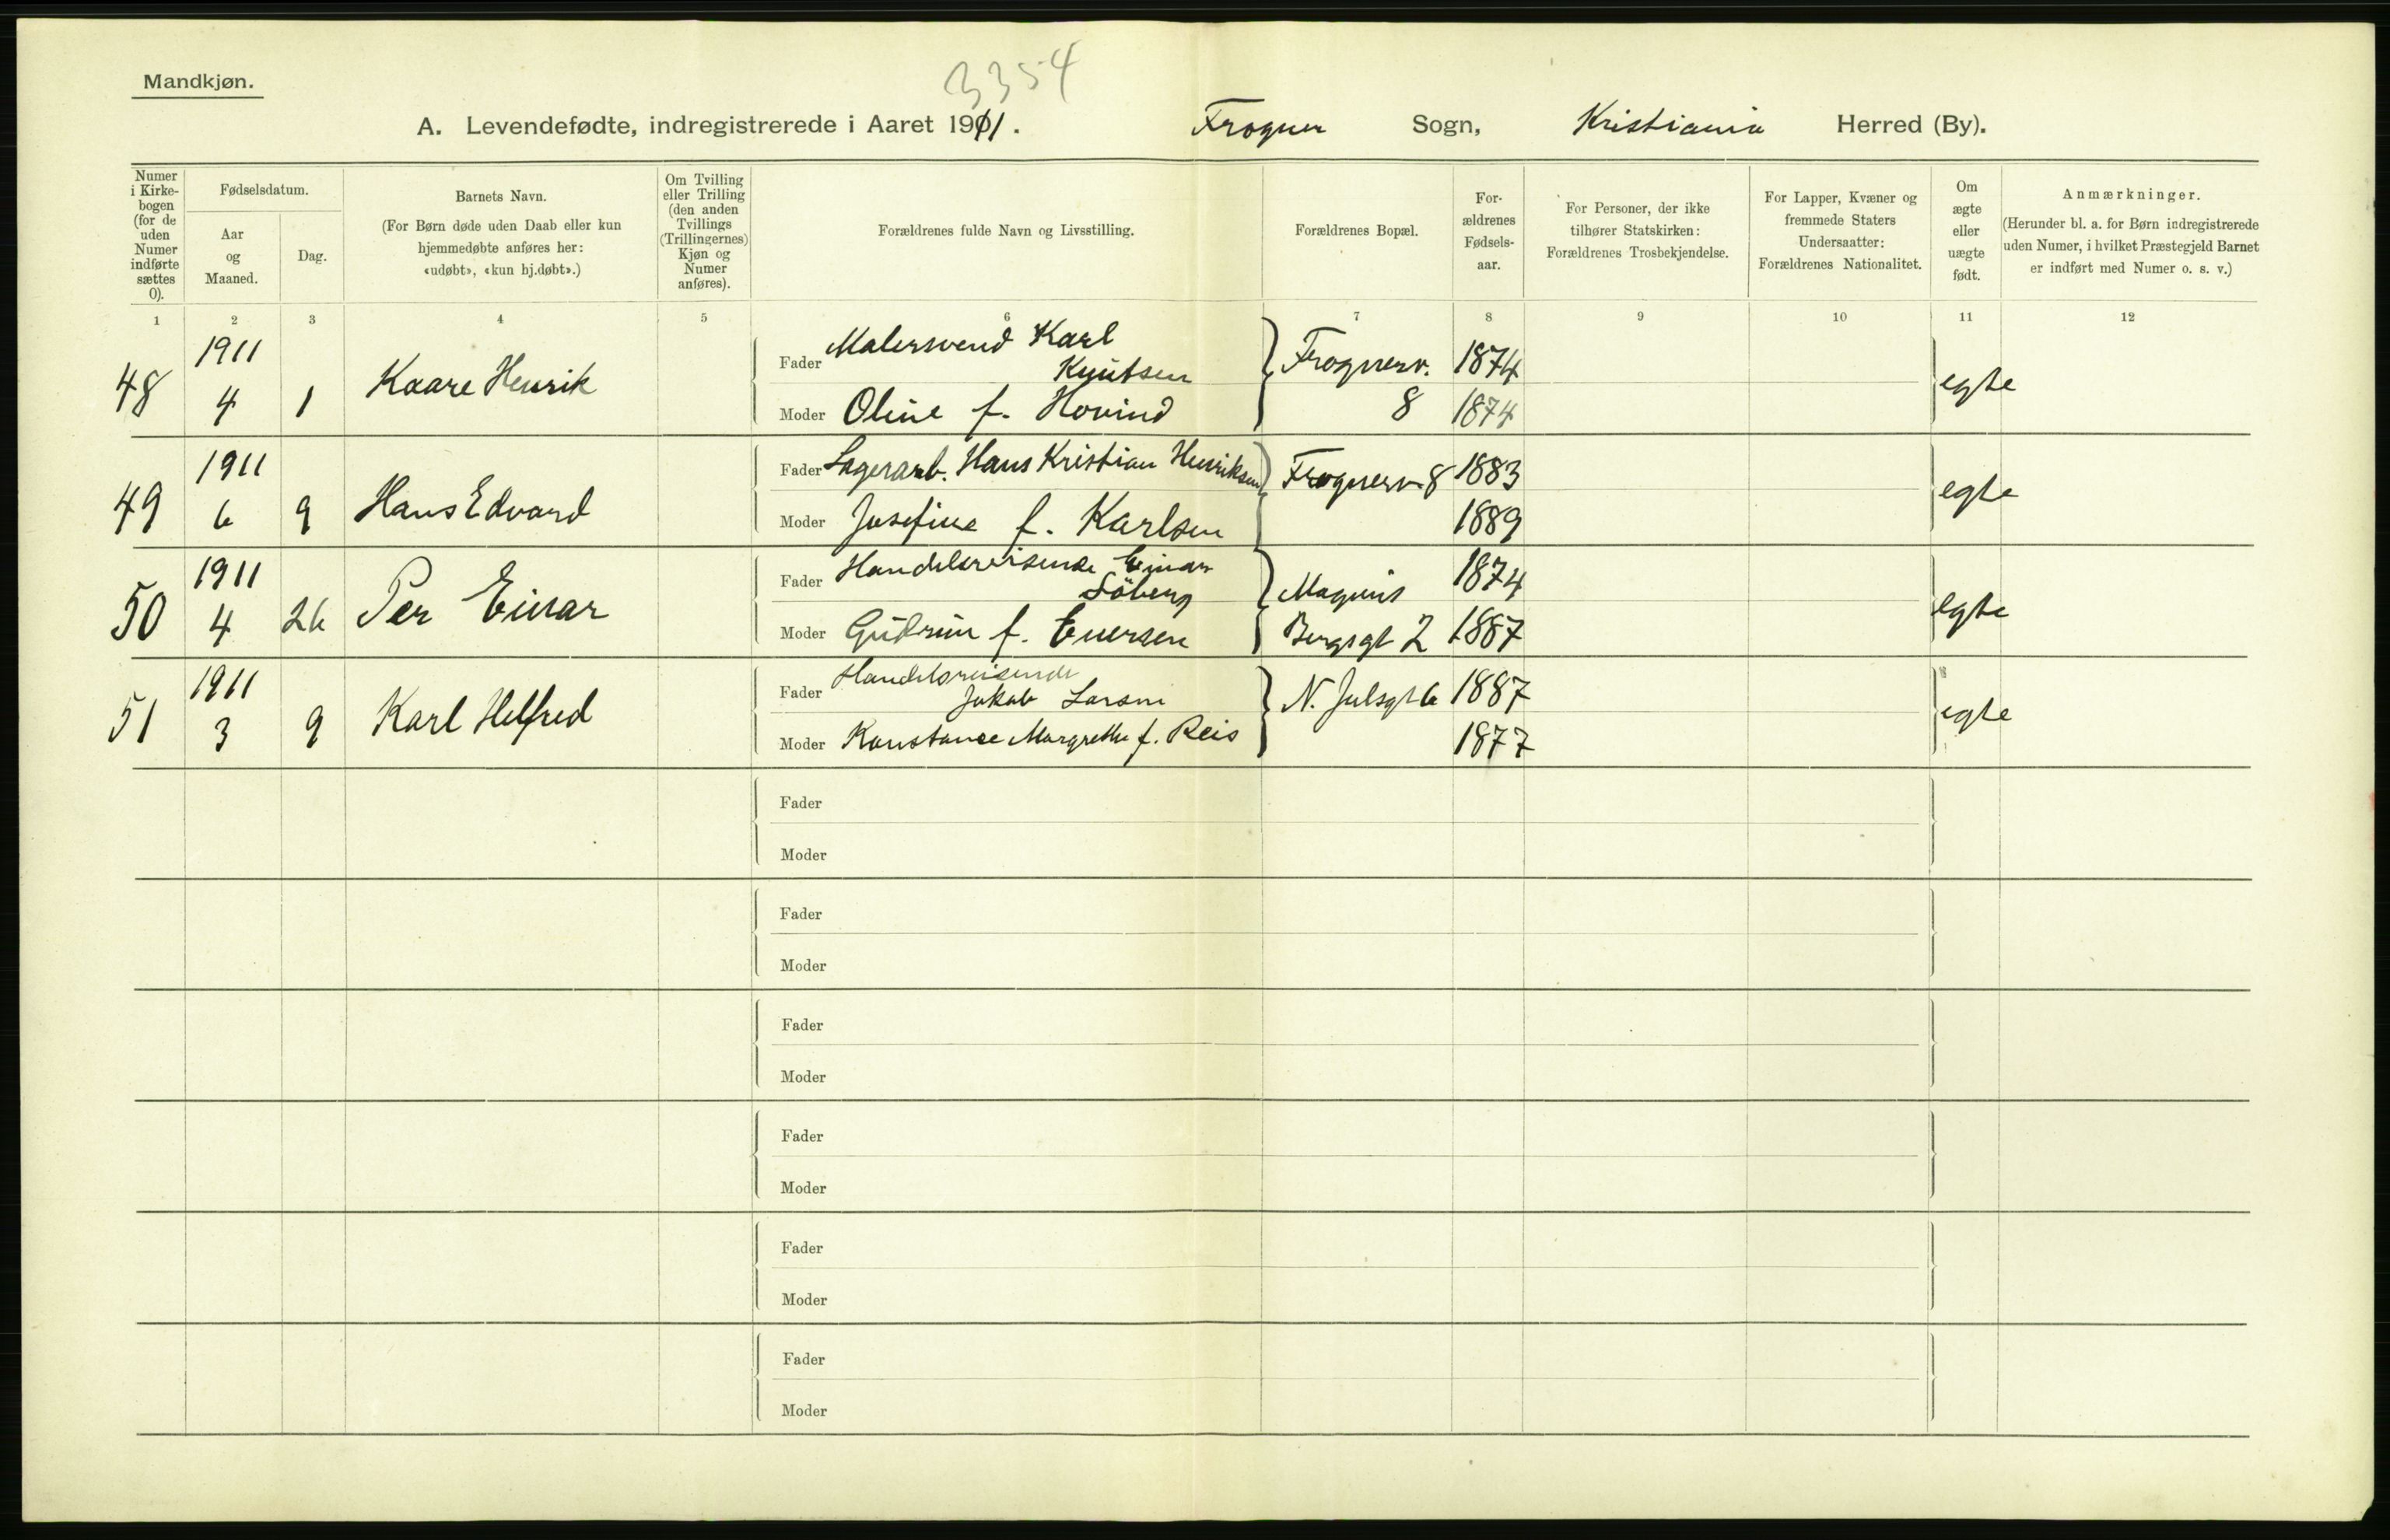 3354
Mandkjøn.
A. Levendefødte, indregistrerede i Aaret 1911. Frogner Sogn, Kristiania Herred (By).
Numer i Kirke- bogen (for de uden Numer indførte sættes 0).
Fødselsdatum.
Aar og Maaned.
Dag.
Barnets Navn.
(For Børn døde uden Daab eller kun
hjemmedøbte anføres her:
«udøbt», «kun hj.døbt».)
Om Tvilling
eller Trilling
(den anden
Tvillings
(Trillingernes)
Kjøn og
Numer
anføres).
Forældrenes fulde Navn og Livsstilling.
Forældrenes Bopæl.
For-
ældrenes
Fødsels-
aar.
For Personer, der ikke
tilhører Statskirken:
Forældrenes Trosbekjendelse.
For Lapper, Kvæner og
fremmede Staters
Undersaatter:
Forældrenes Nationalitet.
Om
ægte
eller
uægte
født.
Anmærkninger.
(Herunder bl. a. for Børn indregistrerede
uden Numer, i hvilket Præstegjeld Barnet
er indført med Numer o. s. v.)
1 2 3 4 5 6 7 8 9 10 11 12
48 1911 4 1 Kaare Henrik
Fader Malersvend Karl
Knutsen
Frognerv. 1874
Moder Oline f. Hovind
8 1874
egte
49 1911 6 9 Hans Edvard
Fader Lagerarb. Hans Kristian Henriksen
Frognerv. 8 1883
Moder Josefine f. Karlsen
1889
egte
50 1911 4 26 Per Einar
Fader Handelsreisende Einar
Söberg
Magnus 1874
Moder Gudrun f. Evensen
Bergsgt 2 1887
egte
51 1911 3 9 Karl Helfred
Fader Handelsreisende
Jakob Larsen
N. Julsgt 6 1887
Moder Konstance Margrethe f. Reis
1877
egte
Fader
Moder
Fader
Moder
Fader
Moder
Fader
Moder
Fader
Moder
Fader
Moder